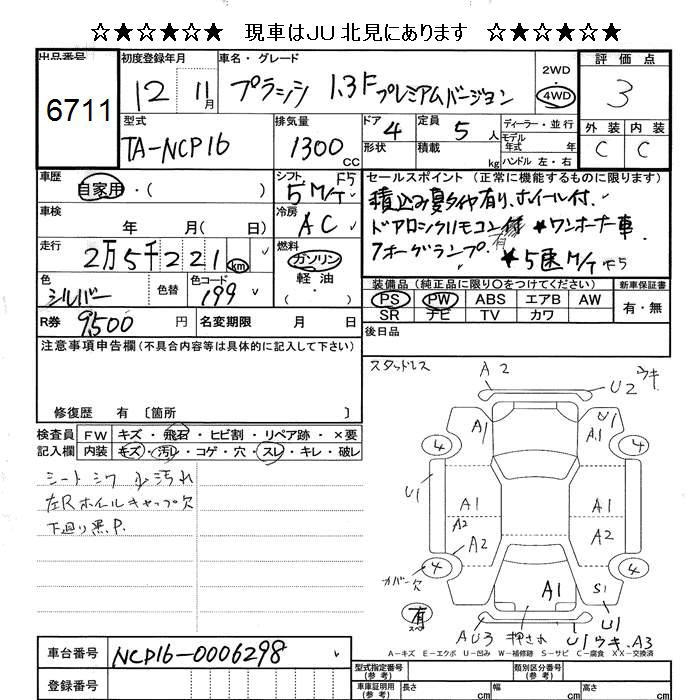 ☆★☆★☆★ 現車はJU北見にあります ☆★☆★☆★
出品番号 初度登録年月 車名・グレード 2WD・4WD 評価点
6711 12 11月 プラッツ 1.3F プレミアムバージョン 3
型式 TA-NCP16 排気量 1300 CC
ドア 4 定員 5人 ディーラー・並行 外装 内装
形状 積載 kg モデル年式 年 ハンドル 左・右 C C
車歴 自家用・( ) シフト F5 5M/T
車検 年 月( 日) 冷房 AC
走行 2万5千221km 燃料 ガソリン 軽油
色 シルバー 色替 色コード 199 ・( )
R券 9500円 名変期限 月 日
セールスポイント(正常に機能するものに限ります)
積込み夏タイヤ有り、ホイル付
ドアロックリモコン ★ワンオーナー車
フォーグランプ 有 ★5速M/T F5
装備品(純正品に限り○をつけてください) 新車保証書
PS PW ABS エアB AW 有・無
SR ナビ TV カワ
後日品
注意事項申告欄(不具合内容等は具体的に記入して下さい)
修復歴 有〔箇所 〕
検査員 FW キズ・飛石・ヒビ割・リペア跡・×要
記入欄 内装 キズ・汚レ・コゲ・穴・スレ・キレ・破レ
シート シワ 少 汚れ
左Rホイルキャップ欠
下廻り黒.P.
スタッドレス
A2 U2 ウキ
A1 U1 A1
4 4
U1 A1 A1
A2 A2 A2
4 4
カバー欠 A1 S1
有 スペ
AU3 押され U1 ウキ U1 A3
A-キズ E-エクボ U-凹み W-補修跡 S-サビ C-腐食 XX-交換済
車台番号 NCP16-0006298
登録番号
型式指定番号(参考) 類別区分番号(参考)
車庫証明用(参考) 長さ cm 幅 cm 高さ cm